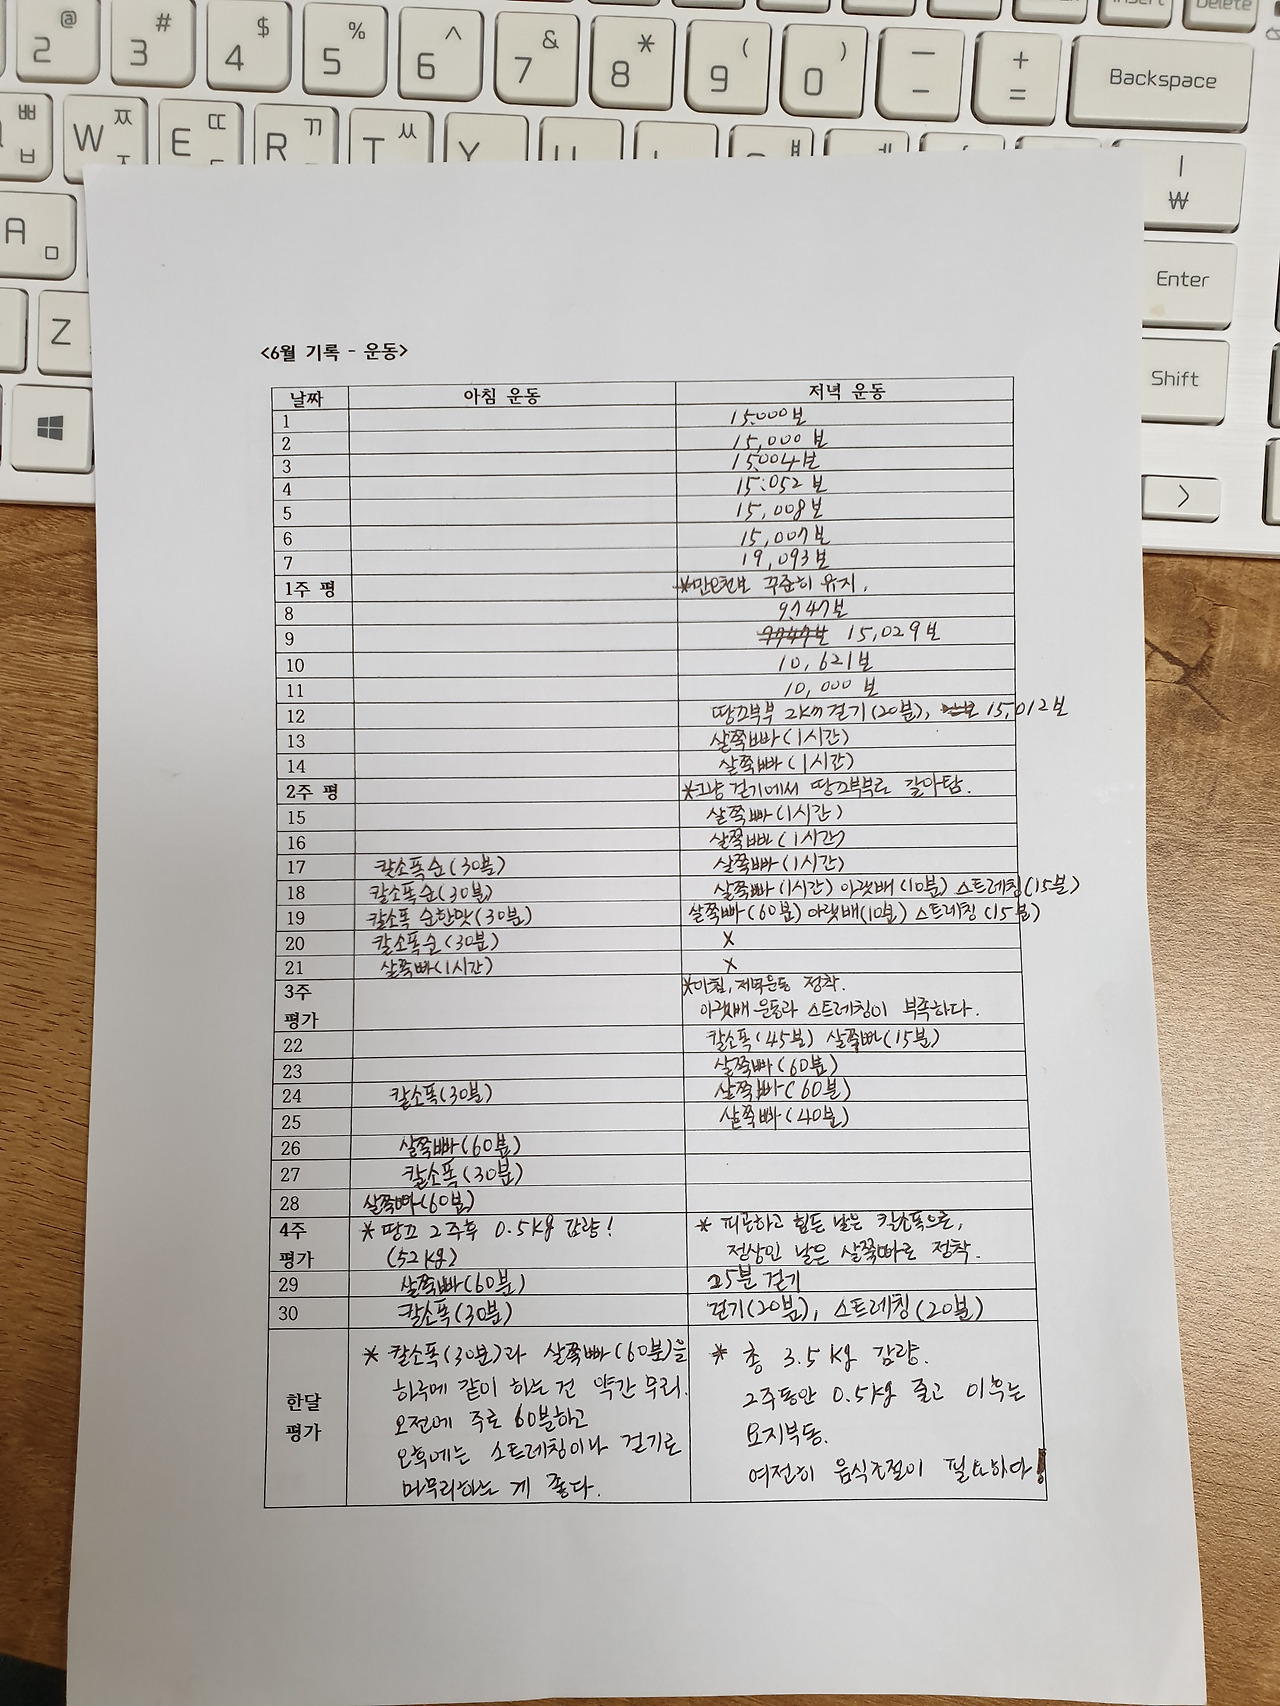 @ # $ % ^ & * ( ) — +
2 3 4 5 6 7 8 9 0 - = Backspace
ㅃ ㅉ ㄸ ㄲ ㅆ
ㅂ W E R T
A ㅁ
Z
Enter
Shift
<6월 기록 - 운동>
날짜 아침 운동 저녁 운동
1 15,000보
2 15,000보
3 15,004보
4 15,052보
5 15,008보
6 15,007보
7 19,093보
1주 평 *만오천보 꾸준히 유지.
8 9,747보
9 9747보 15,029보
10 10,621보
11 10,000보
12 땅끄부부 2km걷기(20분), 15,012보
13 살쭉빠(1시간)
14 살쭉빠(1시간)
2주 평 *그냥 걷기에서 땅끄부부로 갈아탐.
15 살쭉빠(1시간)
16 살쭉빠(1시간)
17 칼소폭순(30분) 살쭉빠(1시간)
18 칼소폭순(30분) 살쭉빠(1시간) 아랫배(10분) 스트레칭(15분)
19 칼소폭 순한맛(30분) 살쭉빠(60분) 아랫배(10분) 스트레칭(15분)
20 칼소폭순(30분) X
21 살쭉빠(1시간) X
3주 평가 *아침, 저녁운동 정착.
아랫배 운동과 스트레칭이 부족하다.
22 칼소폭(45분) 살쭉빠(15분)
23 살쭉빠(60분)
24 칼소폭(30분) 살쭉빠(60분)
25 살쭉빠(40분)
26 살쭉빠(60분)
27 칼소폭(30분)
28 살쭉빠(60분)
4주 평가 * 땅끄 2주후 0.5kg 감량!
(52kg)
* 피곤하고 힘든 날은 칼소폭으로,
정상인 날은 살쭉빠로 정착.
29 살쭉빠(60분) 25분 걷기
30 칼소폭(30분) 걷기(20분), 스트레칭(20분)
한달 평가
* 칼소폭(30분)과 살쭉빠(60분)을
하루에 같이 하는 건 약간 무리.
오전에 주로 60분하고
오후에는 스트레칭이나 걷기로
마무리하는 게 좋다.
* 총 3.5kg 감량.
2주동안 0.5kg 줄고 이후는
요지부동.
여전히 음식조절이 필요하다!